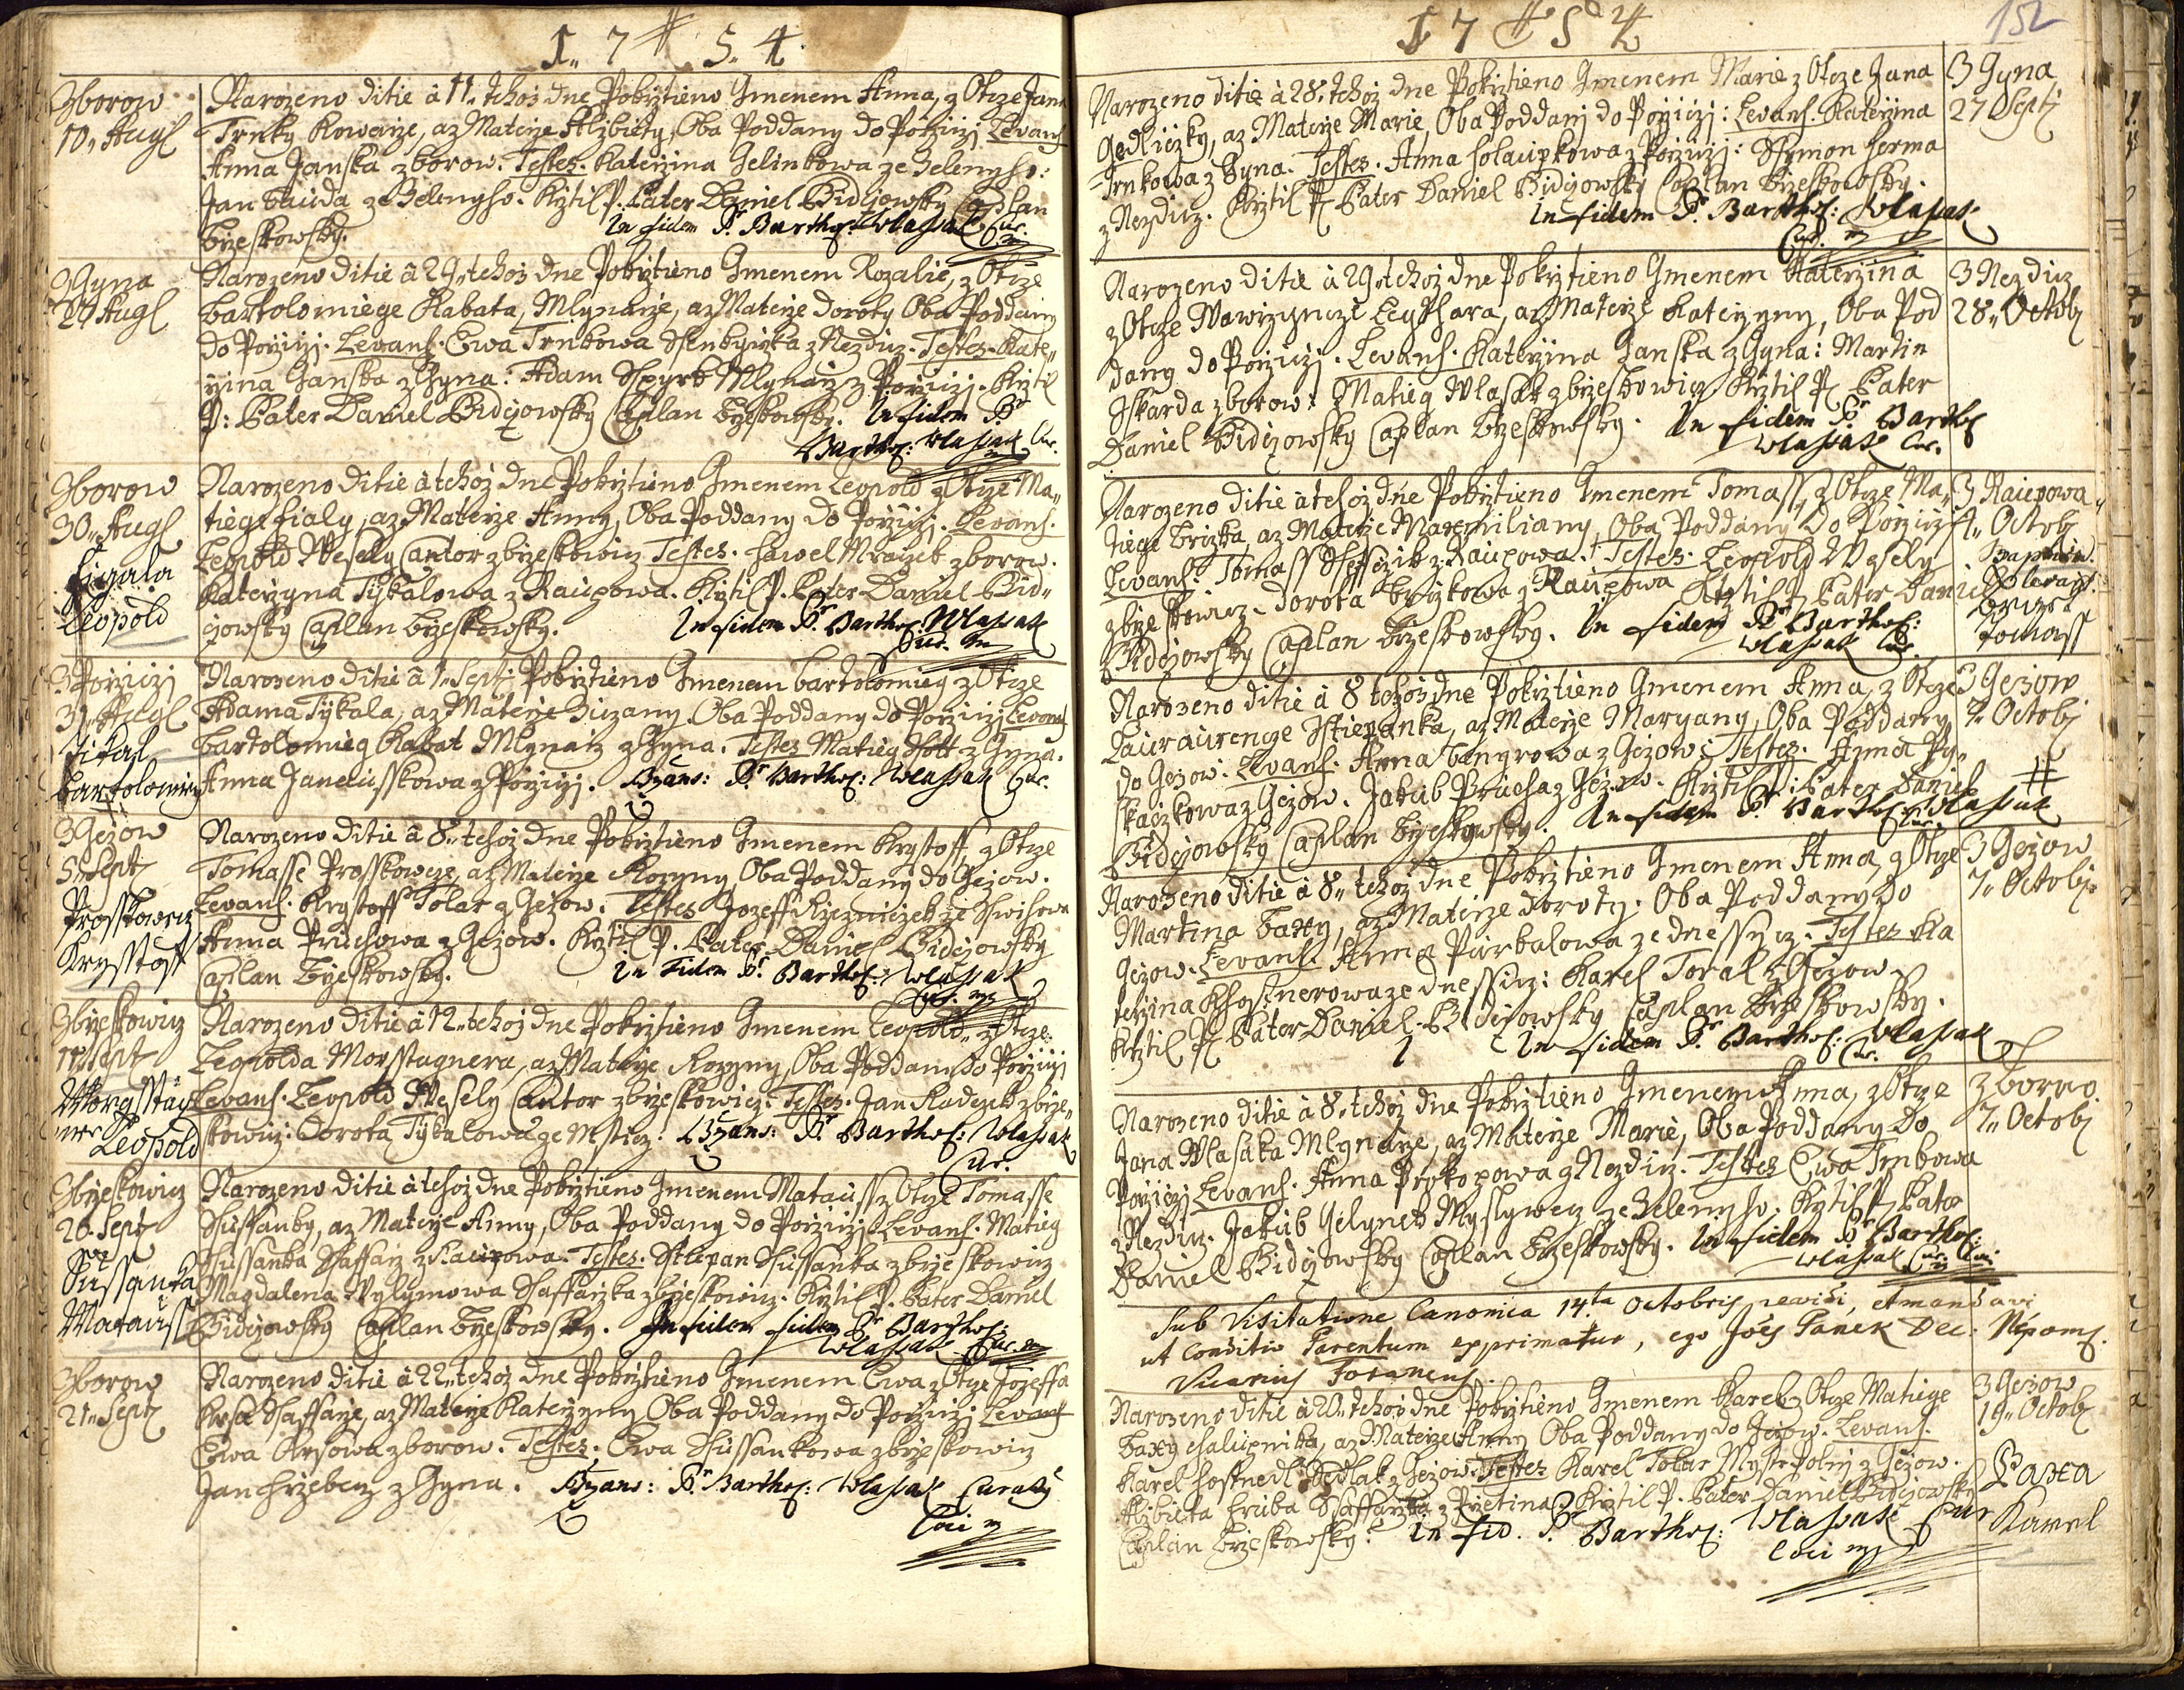 1754
Zborow
10. Augl
Narozeno ditie à 11. tehoz dne Pokrztieno Gmenem Anna, z Otcze Jana
Trnky Kowarze, az Materze Alzbiety, Oba Poddany do Porziczj Levans
Anna Janska zborow. Testes. Katerzina Gelinkowa ze Zelengho:
Jan Bauda ze Zelengho. Krztil P. Pater Daniel Bidcjowsky Caplan
Brzeskowsky. In fidem Pr. Barthol: Wlassak Cur. mp
Z Gyna
Augl
Narozeno ditie à 29. tehoz dne Pokrztieno Gmenem Rozalie, z Otcze
Bartolomiege Kabata, Mlynarze, az Materze Doroty Oba Poddany
do Porziczj. Levans. Ewa Trnkowa Ssenkyrzka z Nezdicz. Testes. Kate„
rzina Janska z Gyna: Adam Mlynarz z Porziczj. Krztil
P: Pater Daniel Bidcjowsky Caplan Brzeskowsky. In fidem Pr.
Barthol: Wlassak Cur.
Zborow
30. Augl
Figala
Leopold
Narozeno ditie à tehoz dne Pokrztieno Gmenem Leopold z Otcze Ma„
tiege Fialy, az Materze Anny, Oba Poddany do Porziczj. Levans.
Leopold Wesely Cantor zbrzeskowicz Testes. Hawel Mrazek zborow.
Katerzyna Tykalowa z Kaupowa. Krztil P. Pater Daniel Bid„
cjowsky Caplan Brzeskowsky. In fidem Pr. Barthol: Wlassak
Cur. mp
Z Porziczj
31. Augl
Tikal
Bartolomieg
Narozeno ditie à 1. Sept: Pokrztieno Gmenem Bartolomieg z Otcze
Adama Tykala, az Materze Zuzany. Oba Poddany do Porziczj Levans
Bartolomieg Kabat Mlynarz z Gyna. Testes Matieg z Gyna.
Anna Janaussskowa z Porziczj. Bzans: Pr. Barthol: Wlassak Cur.
Z Gezow
5. Sept
Prosskowcz
Krysstoff
Narozeno ditie à 8. tehoz dne Pokrztieno Gmenem Krystoff, z Otcze
Tomasse Prosskowcze, az Materze Rozyny Oba Poddany do Gezow.
Levans. Krystoff Tolar z Gezow. Testes Jozeff Rzezniczek ze Swihowa
Anna Pruchowa z Gezow. Krztil P. Pater Daniel Bidcjowsky
Caplan Brzeskowsky. In Fidem Pr. Barthol: Wlassak
Cur. mp
Zbrzeskowicz
11. Sept
Morgsstag
ner Leopold
Narozeno ditie à 12. tehoz dne Pokrztieno Gmenem Leopold z Otcze
Leopolda Morsstagnera, az Materze Rozyny, Oba Poddany do Porziczj
Levans. Leopold Wesely Cantor zbrzeskowicz. Testes. Jan Kadeczek zbrze„
skowicz: Dorota Tykalowa ze Msticz. Bzans: Pr. Barthol: Wlassak
Cur.
Zbrzeskowicz
20. Sept
Sussanka
Matauss
Narozeno ditie à tehoz dne Pokrztieno Gmenem Matauss z Otcze Tomasse
Ssussanky, az Materze Anny, Oba Poddany do Porziczj Levans. Matieg
Ssussanka Ssaffarz z Kaupowa. Testes. Sstiepan Ssussanka zbrzeskowicz
Magdalena Wylymowa Ssaffarzka zbrzeskowicz. Krztil P. Pater Daniel
Bidcjowsky Caplan Brzeskowsky. In fidem fidem Pr. Barthol:
Wlassak Cur. mp
Zborow
21. Sept
Narozeno ditie à 22. tehoz dne Pokrztieno Gmenem Ewa z Otcze Jozeffa
Krsa Ssaffarze, az Materze Katerzyny Oba Poddany do Porziczj Levans
Ewa Krsowa zborow. Testes. Ewa Ssussankowa zbrzeskowicz
Jan Hrzebecz z Gyna. Bzans: Pr. Barthol: Wlassak Curatus
Loci mp
1754
152
Narozeno ditie à 28. tehoz dne Pokrztieno Gmenem Marie z Otcze Jana
Gedliczky, az Materze Marie, Oba Poddanj do Porziczj: Levans. Katerzina
Trnkowa z Gyna. Testes. Anna Holaupkowa z Porziczj: Ssymon Herma
z Nezdicz. Krztil P. Pater Daniel Bidcjowsky Caplan Brzeskowsky.
In fidem Pr. Barthol: Wlassak
Cur. mp
Z Gyna
27 Septj
Narozeno ditie à 29. tehoz dne Pokrztieno Gmenem Katerzina
z Otcze Wawrzyncze Leythara, az Materze Katerzyny, Oba Pod
dany do Porziczj. Levans. Katerzina Janska z Gyna: Martin
Sskarda zborow: Matieg Wlasak zbrzeskowicz Krztil P. Pater
Daniel Bidcjowsky Caplan Brzeskowsky. In fidem Pr. Barthol
Wlassak Cur.
Z Nezdicz
28. Octobj
Narozeno ditie à tehoz dne Pokrztieno Gmenem Tomass, z Otcze Ma„
tiege Brizka, az Materze Maxmiliany, Oba Poddany do Porziczj
Levans. Tomass z Kaupowa. Testes. Leopold Wesely
zbrzeskowicz. Dorota Brizkowa z Kaupowa Krztil P. Pater Daniel
Bidcjowsky Caplan Brzeskowsky. In fidem Pr. Barthol:
Wlassak Cur.
Z Kaupowa
Octobj
Tomass
Narozeno ditie à 8 tehoz dne Pokrztieno Gmenem Anna, z Otcze
Lauraurencze Sstiepanka, az Materze Maryany, Oba Poddany
do Gezow. Levans. Anna z Gezow: Testes. Anna Py„
z Gezow. Jakub Prucha z Gezow. Krztil P: Pater Daniel
Bidcjowsky Caplan Brzeskowsky. In fidem Pr. Barthol: Wlassak
Cur.
Z Gezow
7. Octobj
Narozeno ditie à 8. tehoz dne Pokrztieno Gmenem Anna, z Otcze
Martina Baxy, az Materze Doroty. Oba Poddany do
Gezow. Levans. Anna Purkalowa ze dnessycz. Testes Ka
terzina ze dnessicz: Karel Toral z Gezow
Krztil P. Pater Daniel Bidcjowsky Caplan Brzeskowsky.
In fidem Pr. Barthol: Wlassak
Cur.
Z Gezow
7. Octobj
Narozeno ditie à 8. tehoz dne Pokrztieno Gmenem Anna, z Otcze
Jana Wlasaka Mlynarze, az Materze Marie, Oba Poddany do
Porziczj Levans. Anna Prokopowa z Nezdicz. Testes Ewa Trnkowa
z Nezdicz. Jakub Gelynek Myslywecz ze Zelengho. Krztil P. Pater
Daniel Bidcjowsky Caplan Brzeskowsky. In fidem Pr. Barthol:
Wlassak Cur.
Zborow.
7. Octobj
Sub Visitatione Canonica 14ta Octobris revidi, et mandavi
ut Conditio Parentum exprimatur, ego Joēs Panek Dec: Nepom.
Vicarius Foraneus.
Narozeno ditie à 20. tehoz dne Pokrztieno Gmenem Karel z Otcze Matiege
Baxy chalupnika, az Materze Anny Oba Poddany do Gezow. Levans.
Karel Hostnedl Sedlak z Gezow. Testes Karel Tolar Mystr Polnj z Gezow.
Alzbieta Hruba Ssaffarzka z Prjetina. Krztil P. Pater Daniel Bidcjowsky
Caplan Brzeskowsky. In fid. Pr. Barthol: Wlassak Cur
Loci mp
Z Gezow
19. Octobj
Baxa
Karel